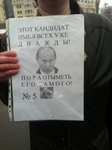 ЭТОТ КАНДИДАТ
ИМЕЛ ВСЕХ УЖЕ
ДВАЖДЫ!
ПОРА ОТЫМЕТЬ
ЕГО САМОГО!
№ 5